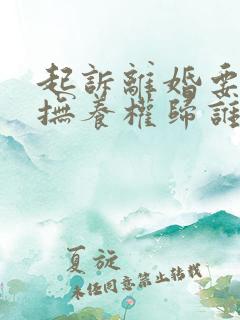 起訴離婚要
撫養權歸誰
夏旋
未经同意禁止转载